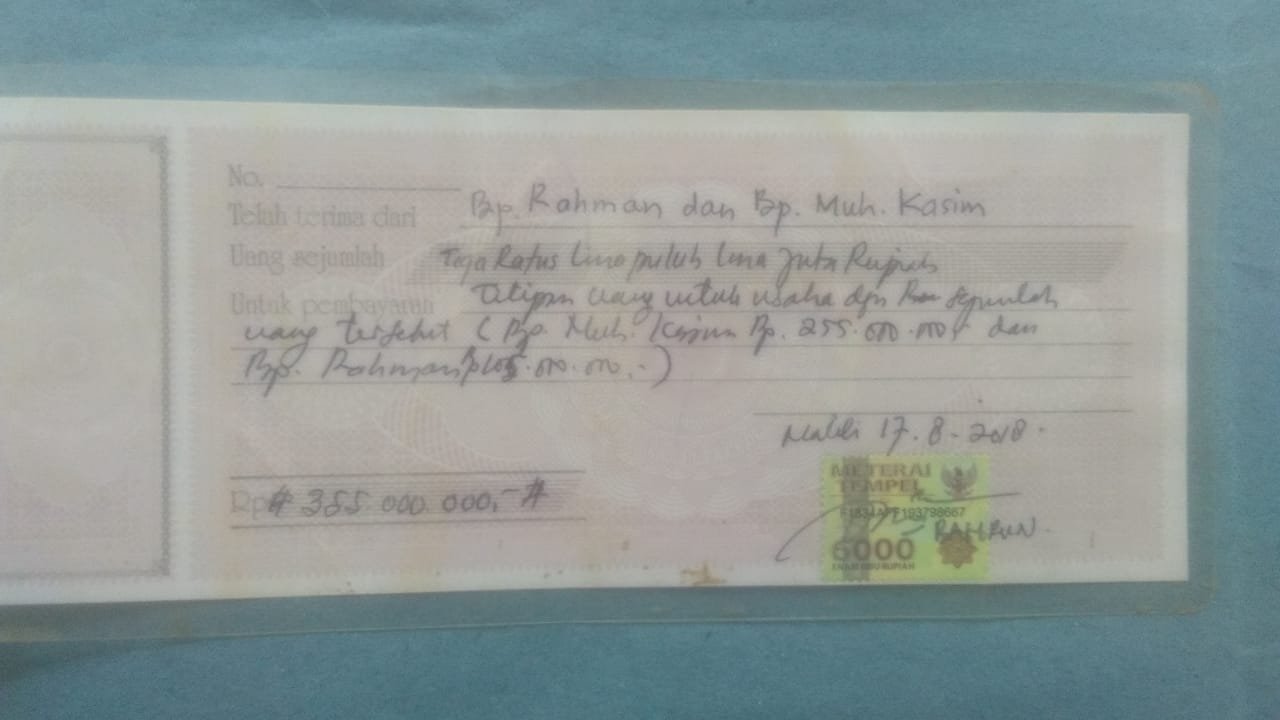 No.
Telah terima dari Bp. Rahman dan Bp. Muh. Kasim
Uang sejumlah Tiga Ratus Lima puluh lima Juta Rupiah
Untuk pembayaran Titipan uang untuk usaha dgn sejumlah
uang tersebut (Bp. Muh. Kasim Rp. 255.000.000,- dan
Bp. Rahman Rp 105.000.000,-)
17.8-2018.
Rp # 355.000.000,- #
METERAI
TEMPEL
6000
ENAM RIBU RUPIAH